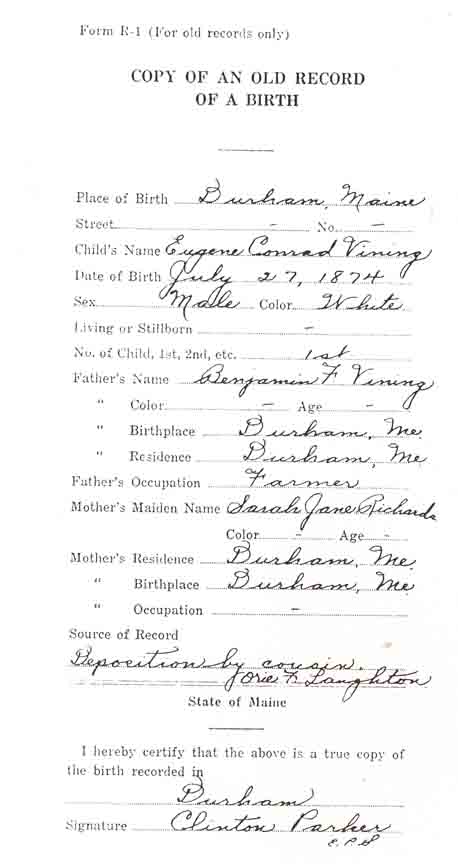 Form R-1 (For old records only)
COPY OF AN OLD RECORD
OF A BIRTH
Place of Birth Durham, Maine
Street - No. -
Child's Name Eugene Conrad Vining
Date of Birth July 27, 1874
Sex Male Color White
Living or Stillborn -
No. of Child, 1st, 2nd, etc. 1st
Father's Name Benjamin F Vining
" Color - Age -
" Birthplace Durham, Me.
" Residence Durham, Me
Father's Occupation Farmer
Mother's Maiden Name Sarah Jane Richards
Color - Age -
Mother's Residence Durham, Me.
" Birthplace Durham, Me
" Occupation -
Source of Record
Deposition by cousin.
F. Laughton
State of Maine
I hereby certify that the above is a true copy of
the birth recorded in
Durham
Signature Clinton Parker